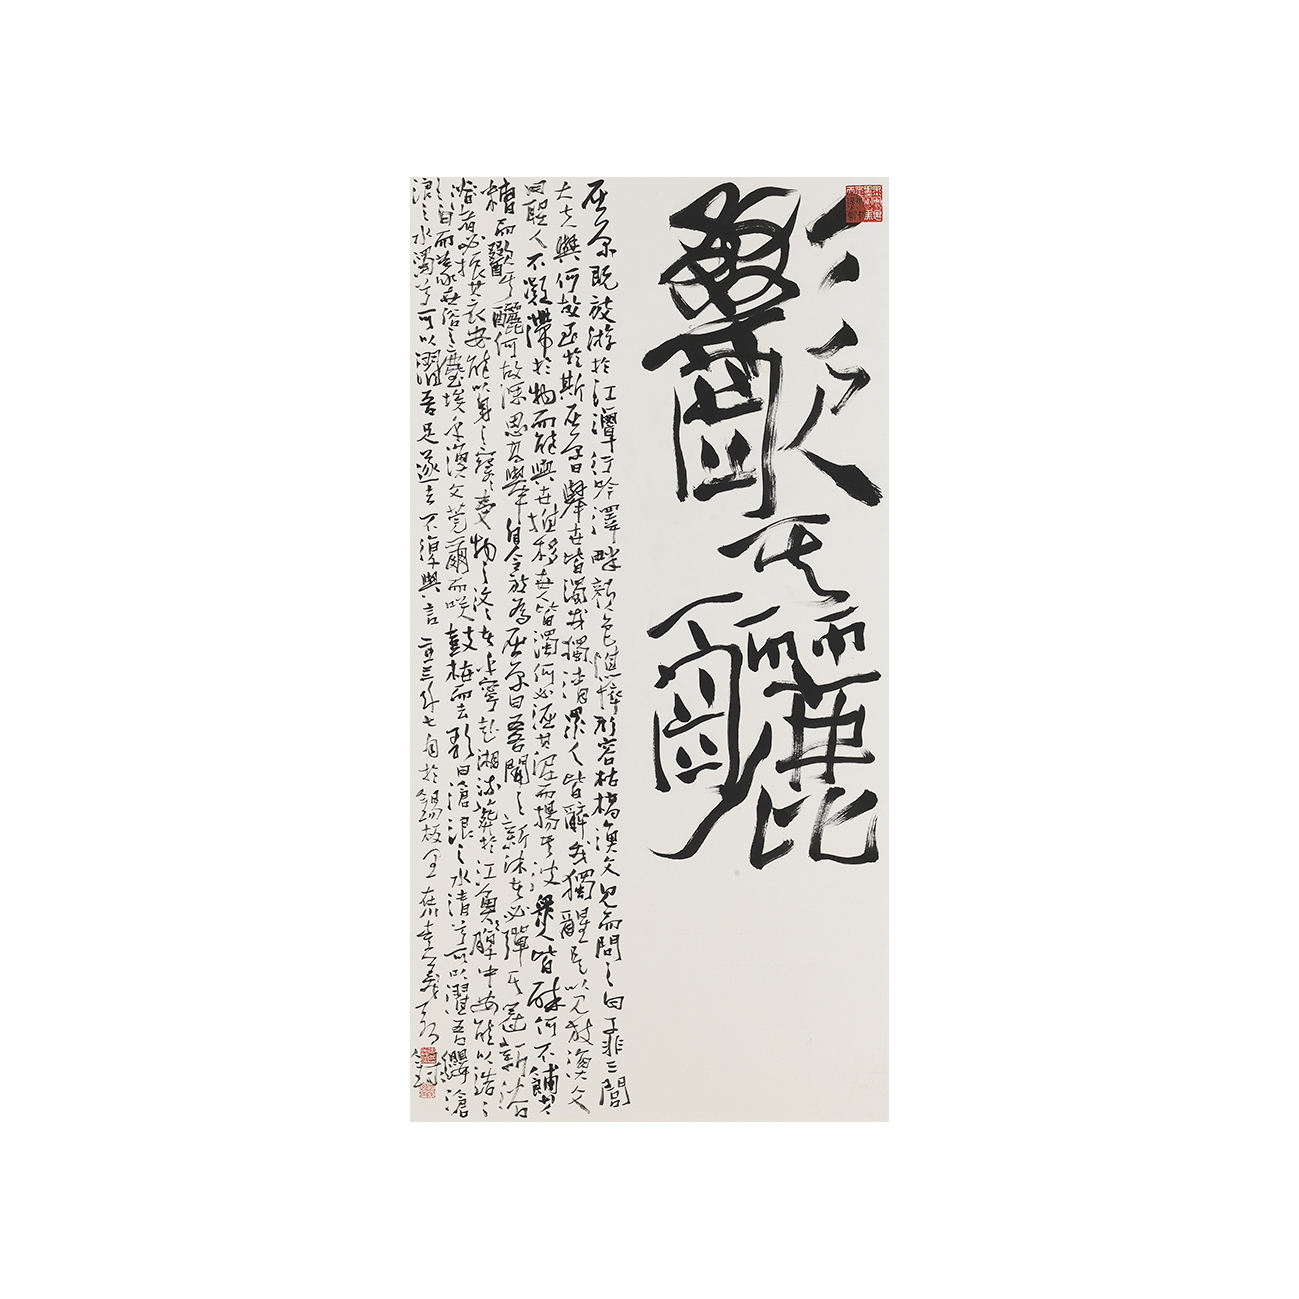 歠其釃
屈原既放游於江潭行吟澤畔顏色憔悴形容枯槁漁父見而問之曰子非三閭
大夫與何故至於斯屈原曰舉世皆濁我獨清眾人皆醉我獨醒是以見放漁父
曰聖人不凝滯於物而能與世推移世人皆濁何必淈其泥而揚其波眾人皆醉何不餔其
糟而歠其釃何故深思高舉自令放為屈原曰吾聞之新沐者必彈其冠新浴
浴者必振其衣安能以身之察察受物之汶汶者乎寧赴湘流葬於江魚腹中安能以皓皓
之白而蒙世俗之塵埃乎漁父莞爾而笑鼓枻而去歌曰滄浪之水清兮可以濯吾纓滄
浪之水濁兮可以濯吾足遂去不復與言 年七月於